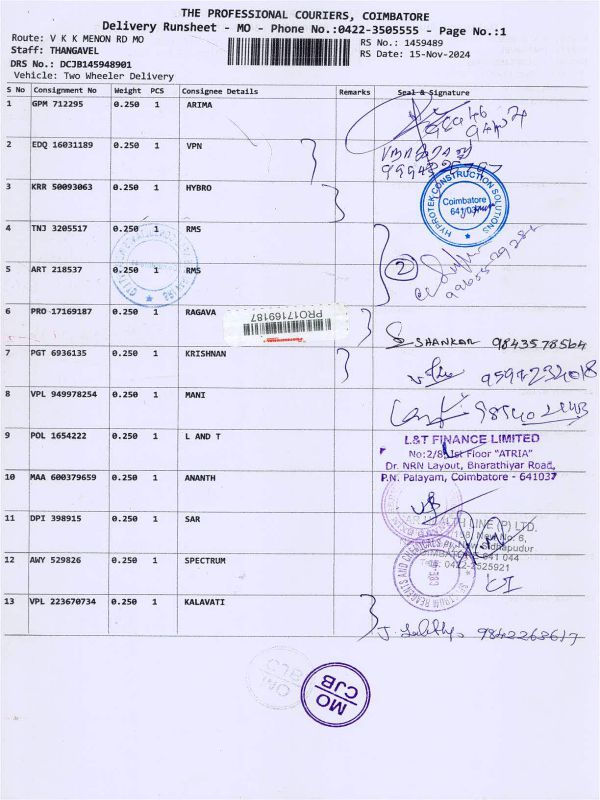 THE PROFESSIONAL COURIERS, COIMBATORE
Delivery Runsheet - MO - Phone No.:0422-3505555 - Page No.:1
Route: V K K MENON RD MO
RS No.: 1459489
Staff: THANGAVEL
RS Date: 15-Nov-2024
DRS No.: DCJB145948901
Vehicle: Two Wheeler Delivery
S No Consignment No Weight PCS Consignee Details Remarks Seal & Signature
1 GPM 712295 0.250 1 ARIMA
2 EDQ 16031189 0.250 1 VPN
3 KRR 50093063 0.250 1 HYBRO
HYPROTEK CONSTRUCTION SOLUTIONS
Coimbatore
4 TNJ 3205517 0.250 1 RMS
2
5 ART 218537 0.250 1 RMS
6 PRO 17169187 0.250 1 RAGAVA
PRO17169187
SHANKAR 9843578564
7 PGT 6936135 0.250 1 KRISHNAN
8 VPL 949978254 0.250 1 MANI
9 POL 1654222 0.250 1 L AND T
L&T FINANCE LIMITED
No:2/8, 1st Floor "ATRIA"
Dr. NRN Layout, Bharathiyar Road,
P.N. Palayam, Coimbatore - 641037
10 MAA 600379659 0.250 1 ANANTH
11 DPI 398915 0.250 1 SAR
HEALTH LINE (P) LTD.
New No. 6,
Sidhapudur
641 044
12 AWY 529826 0.250 1 SPECTRUM
SPECTRUM REAGENTS AND CHEMICALS
13 VPL 223670734 0.250 1 KALAVATI
MO
CJB